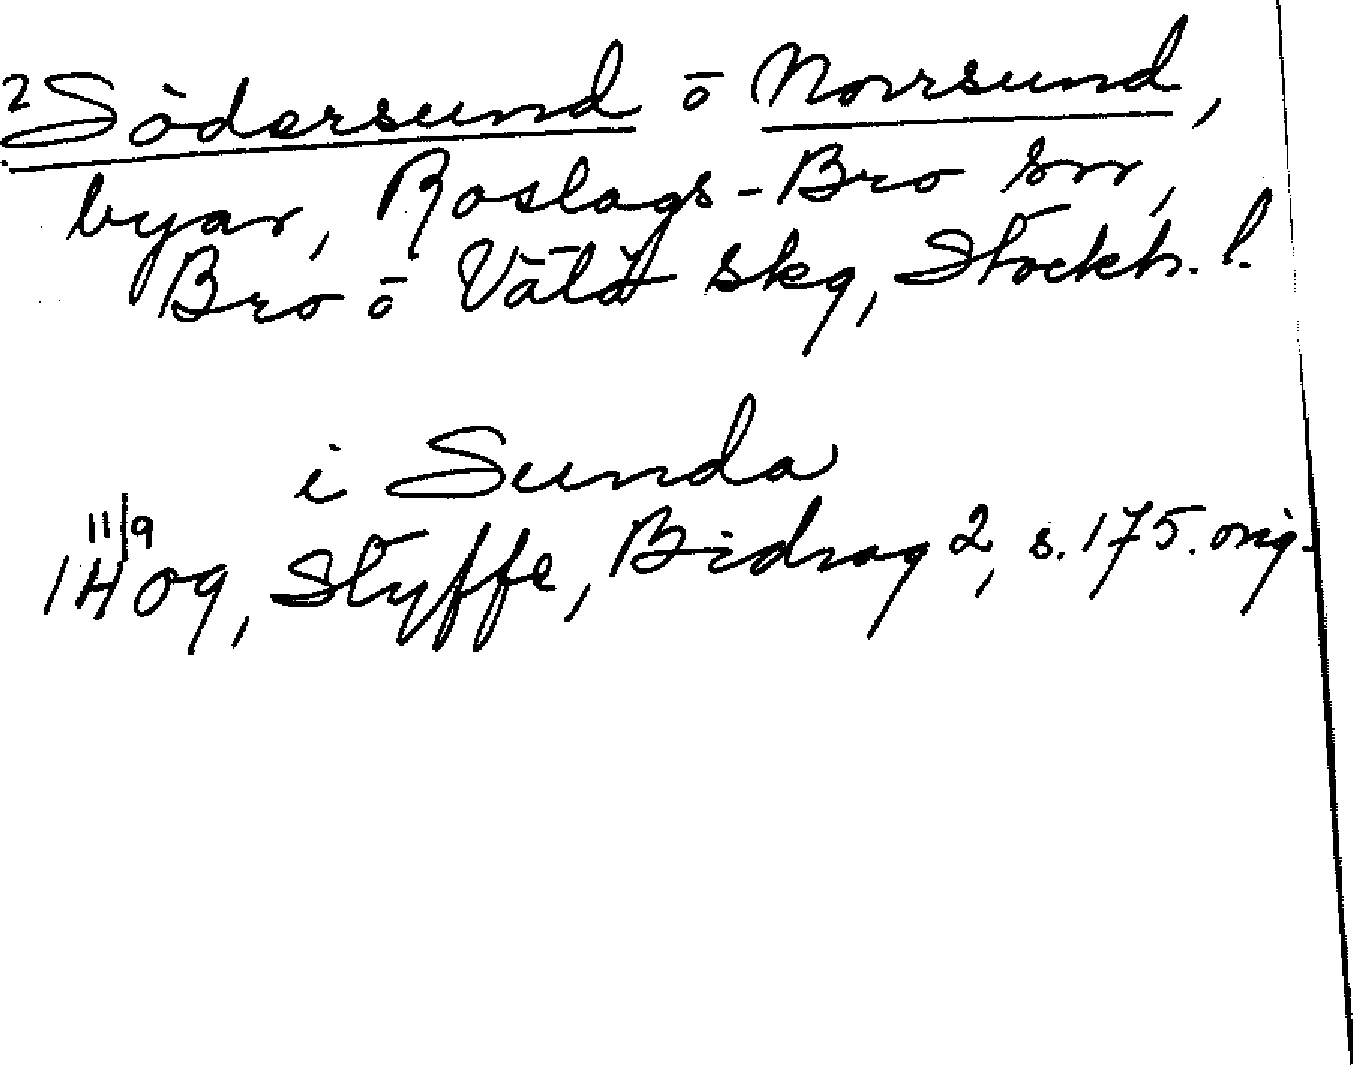 2 Södersund ō Norrsund,
byar, Roslags-Bro sn,
Bro ō Vätö skg, Stockh. l.
i Sunda
11/9
1409, Styffe, Bidrag 2, s. 175. orig.